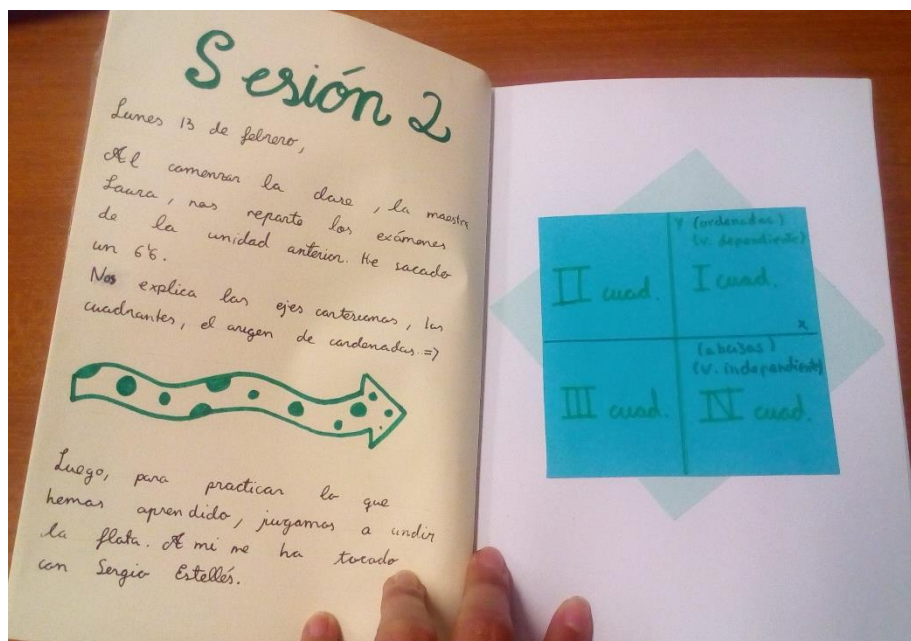 Sesión 2
Lunes 13 de febrero,
Al comenzar la clase, la maestra
Laura, nos reparte los exámenes
de la unidad anterior. He sacado
un 6'6.
Nos explica los ejes cartesianos, los
cuadrantes, el origen de cordenadas.=>
Luego, para practicar lo que
hemos aprendido, jugamos a undir
la flota. A mi me ha tocado
con Sergio Estellés.
Y (ordenadas)
(v. dependiente)
II cuad. I cuad.
X
(abcisas)
(v. independiente)
III cuad. IV cuad.